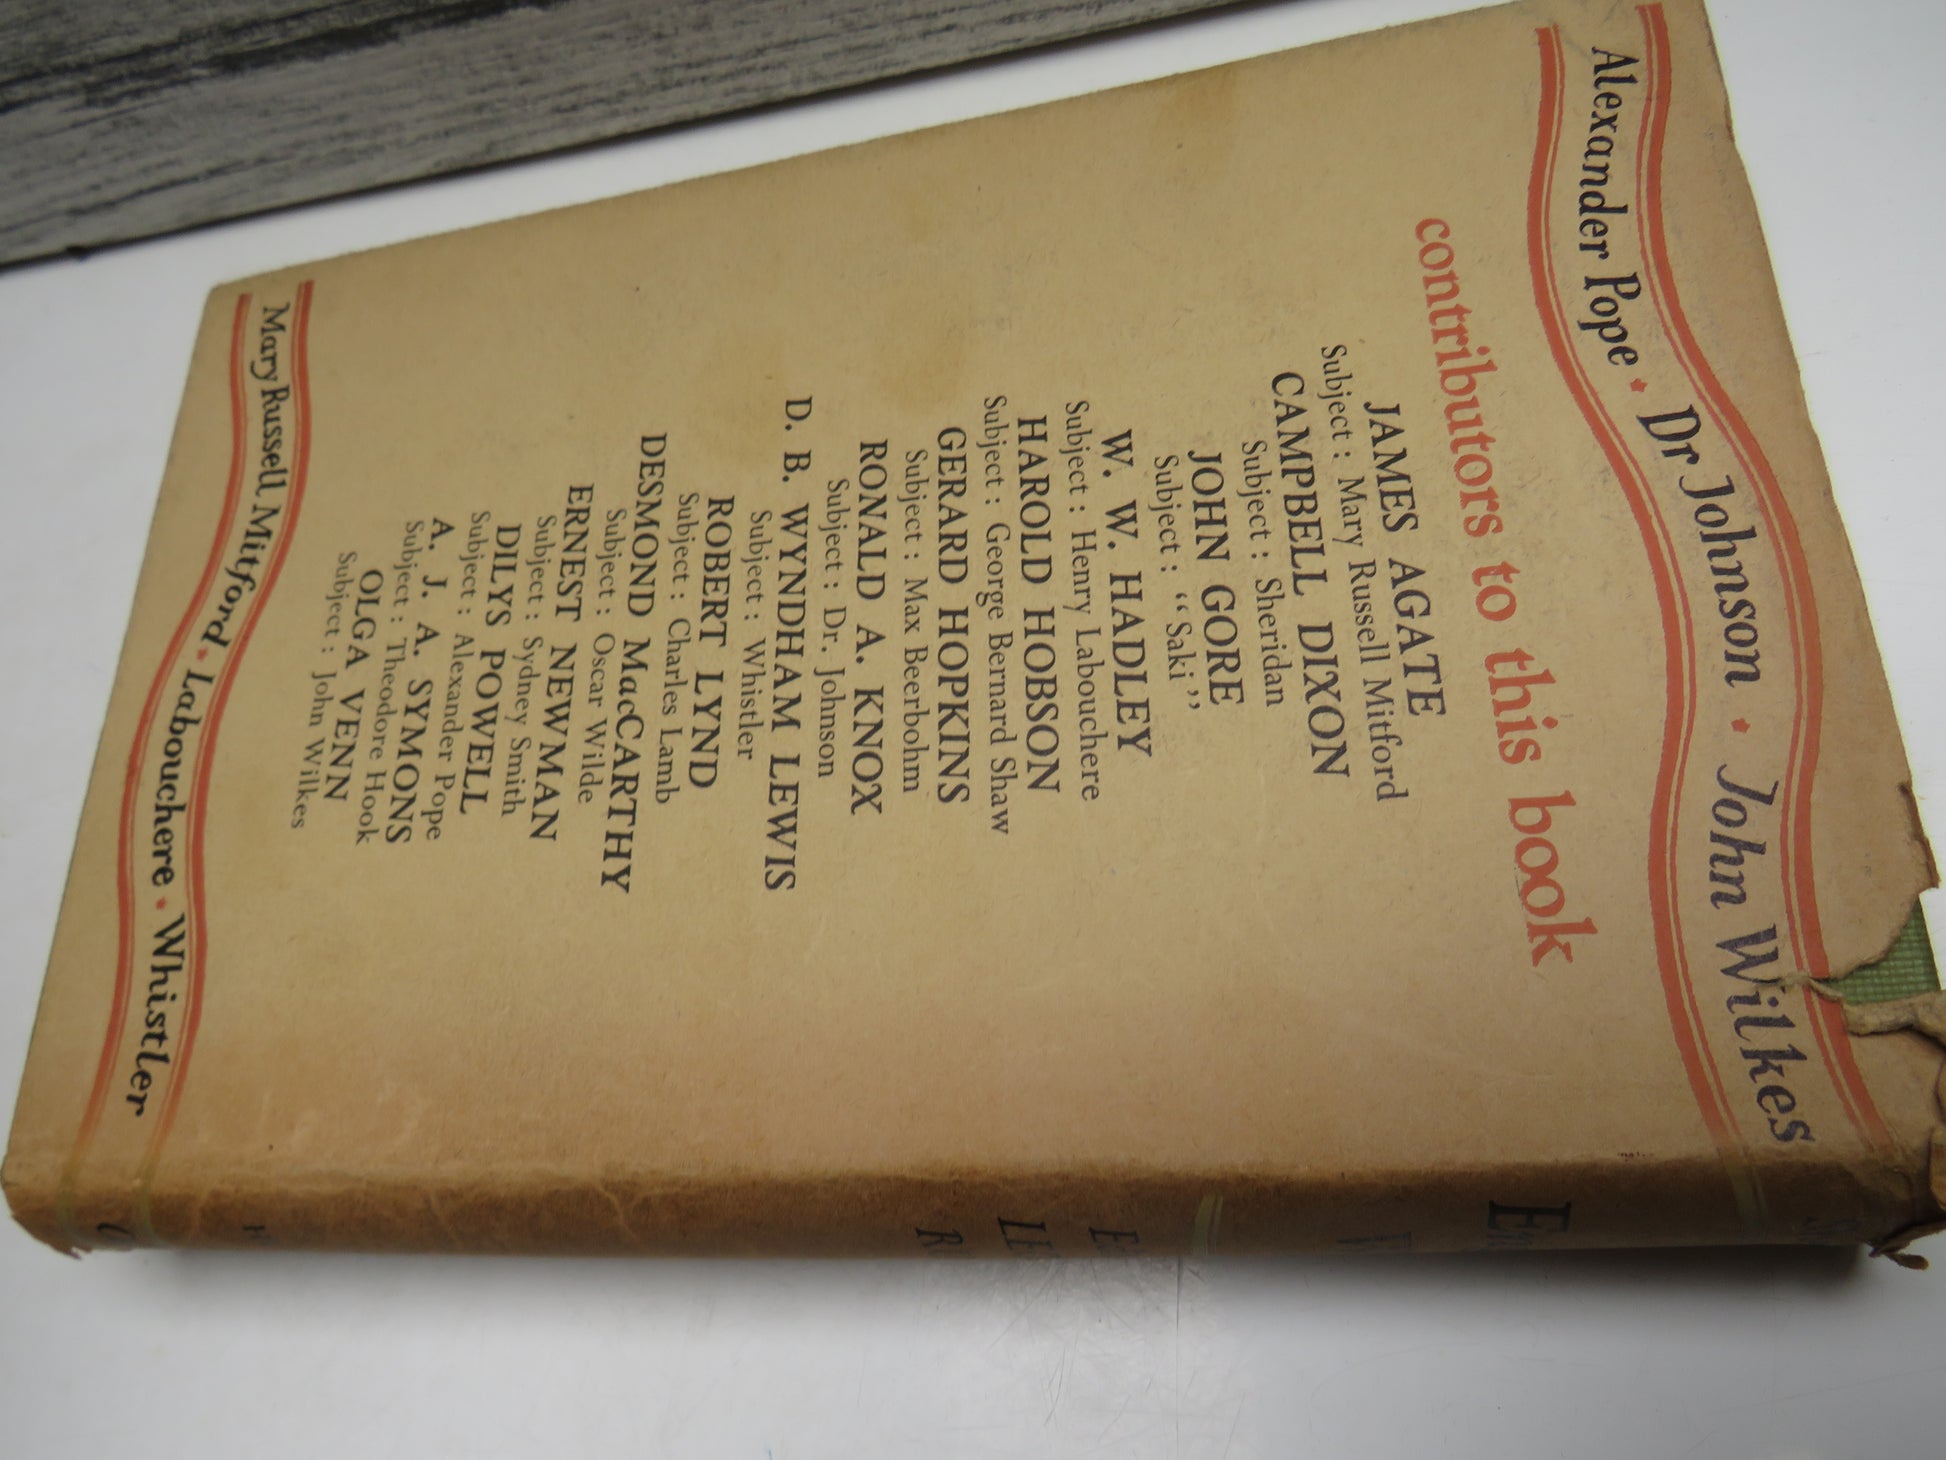 Alexander Pope · Dr Johnson · John Wilkes
contributors to this book
JAMES AGATE
Subject : Mary Russell Mitford
CAMPBELL DIXON
Subject : Sheridan
JOHN GORE
Subject : “Saki”
W. W. HADLEY
Subject : Henry Labouchere
HAROLD HOBSON
Subject : George Bernard Shaw
GERARD HOPKINS
Subject : Max Beerbohm
RONALD A. KNOX
Subject : Dr. Johnson
D. B. WYNDHAM LEWIS
Subject : Whistler
ROBERT LYND
Subject : Charles Lamb
DESMOND MacCARTHY
Subject : Oscar Wilde
ERNEST NEWMAN
Subject : Sydney Smith
DILYS POWELL
Subject : Alexander Pope
A. J. A. SYMONS
Subject : Theodore Hook
OLGA VENN
Subject : John Wilkes
Mary Russell Mitford · Labouchere · Whistler